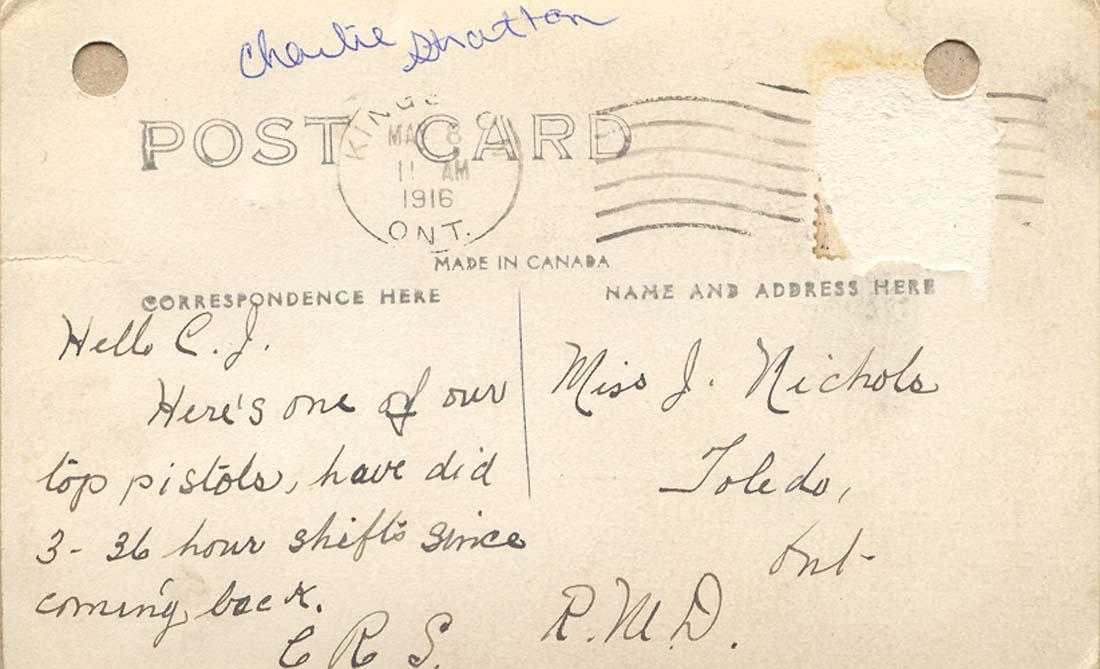 Charlie Stratton
POST CARD
KINGS ON
MA 8
11 AM
1916
ONT.
MADE IN CANADA
CORRESPONDENCE HERE
NAME AND ADDRESS HERE
Hello C. J.
Here's one of our
top pistols, have did
3 - 36 hour shifts since
coming back.
C R S.
Miss J. Nichols
Toledo,
Ont-
R. M. D.